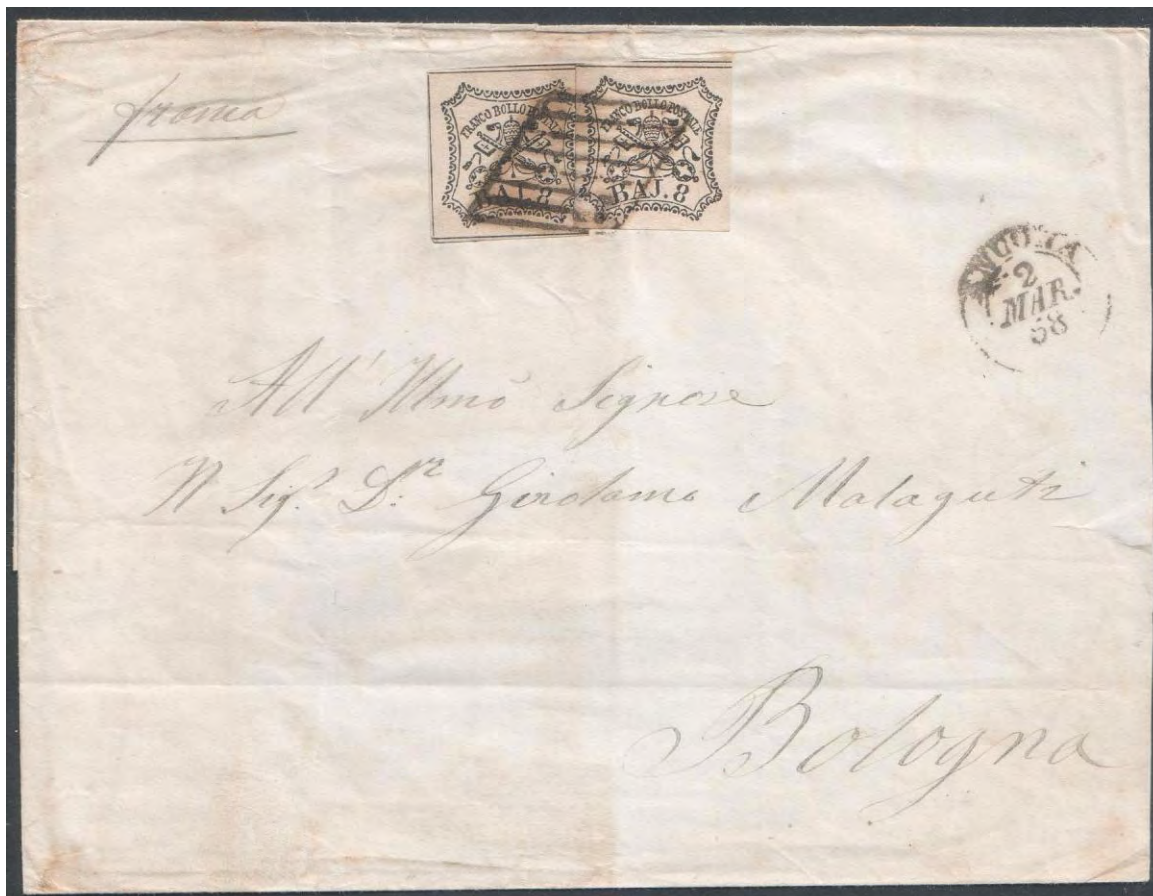 franca
FRANCO BOLLO POSTALE
BAJ. 8
FRANCO BOLLO POSTALE
BAJ. 8
2
MAR.
58
All' Illmo Signore
Il Sig.r D.r Girolamo Malaguti
Bologna